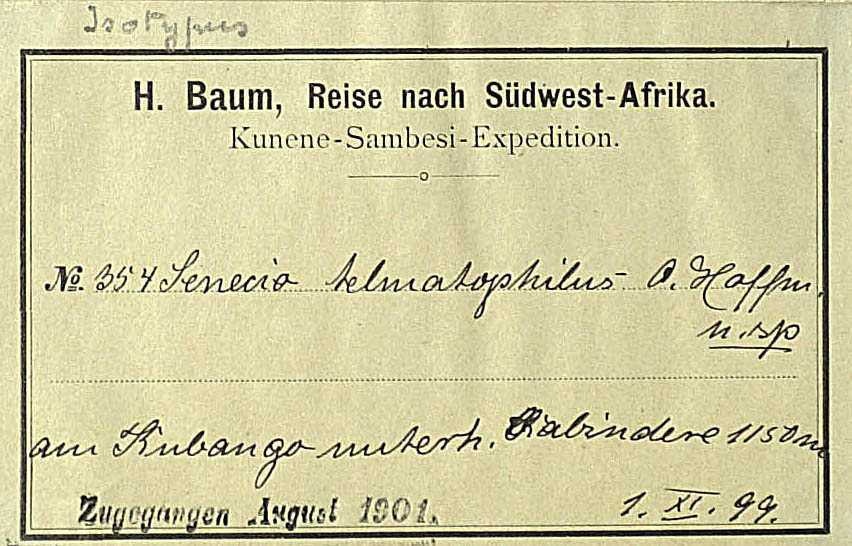 Isotypus
H. Baum, Reise nach Südwest-Afrika.
Kunene-Sambesi-Expedition.
No. 354 Senecio telmatophilus O. Hoffm.
n. sp
am Kubango unterh. Kabindere 1150 m
Zugegangen August 1901.
1. XI. 99.